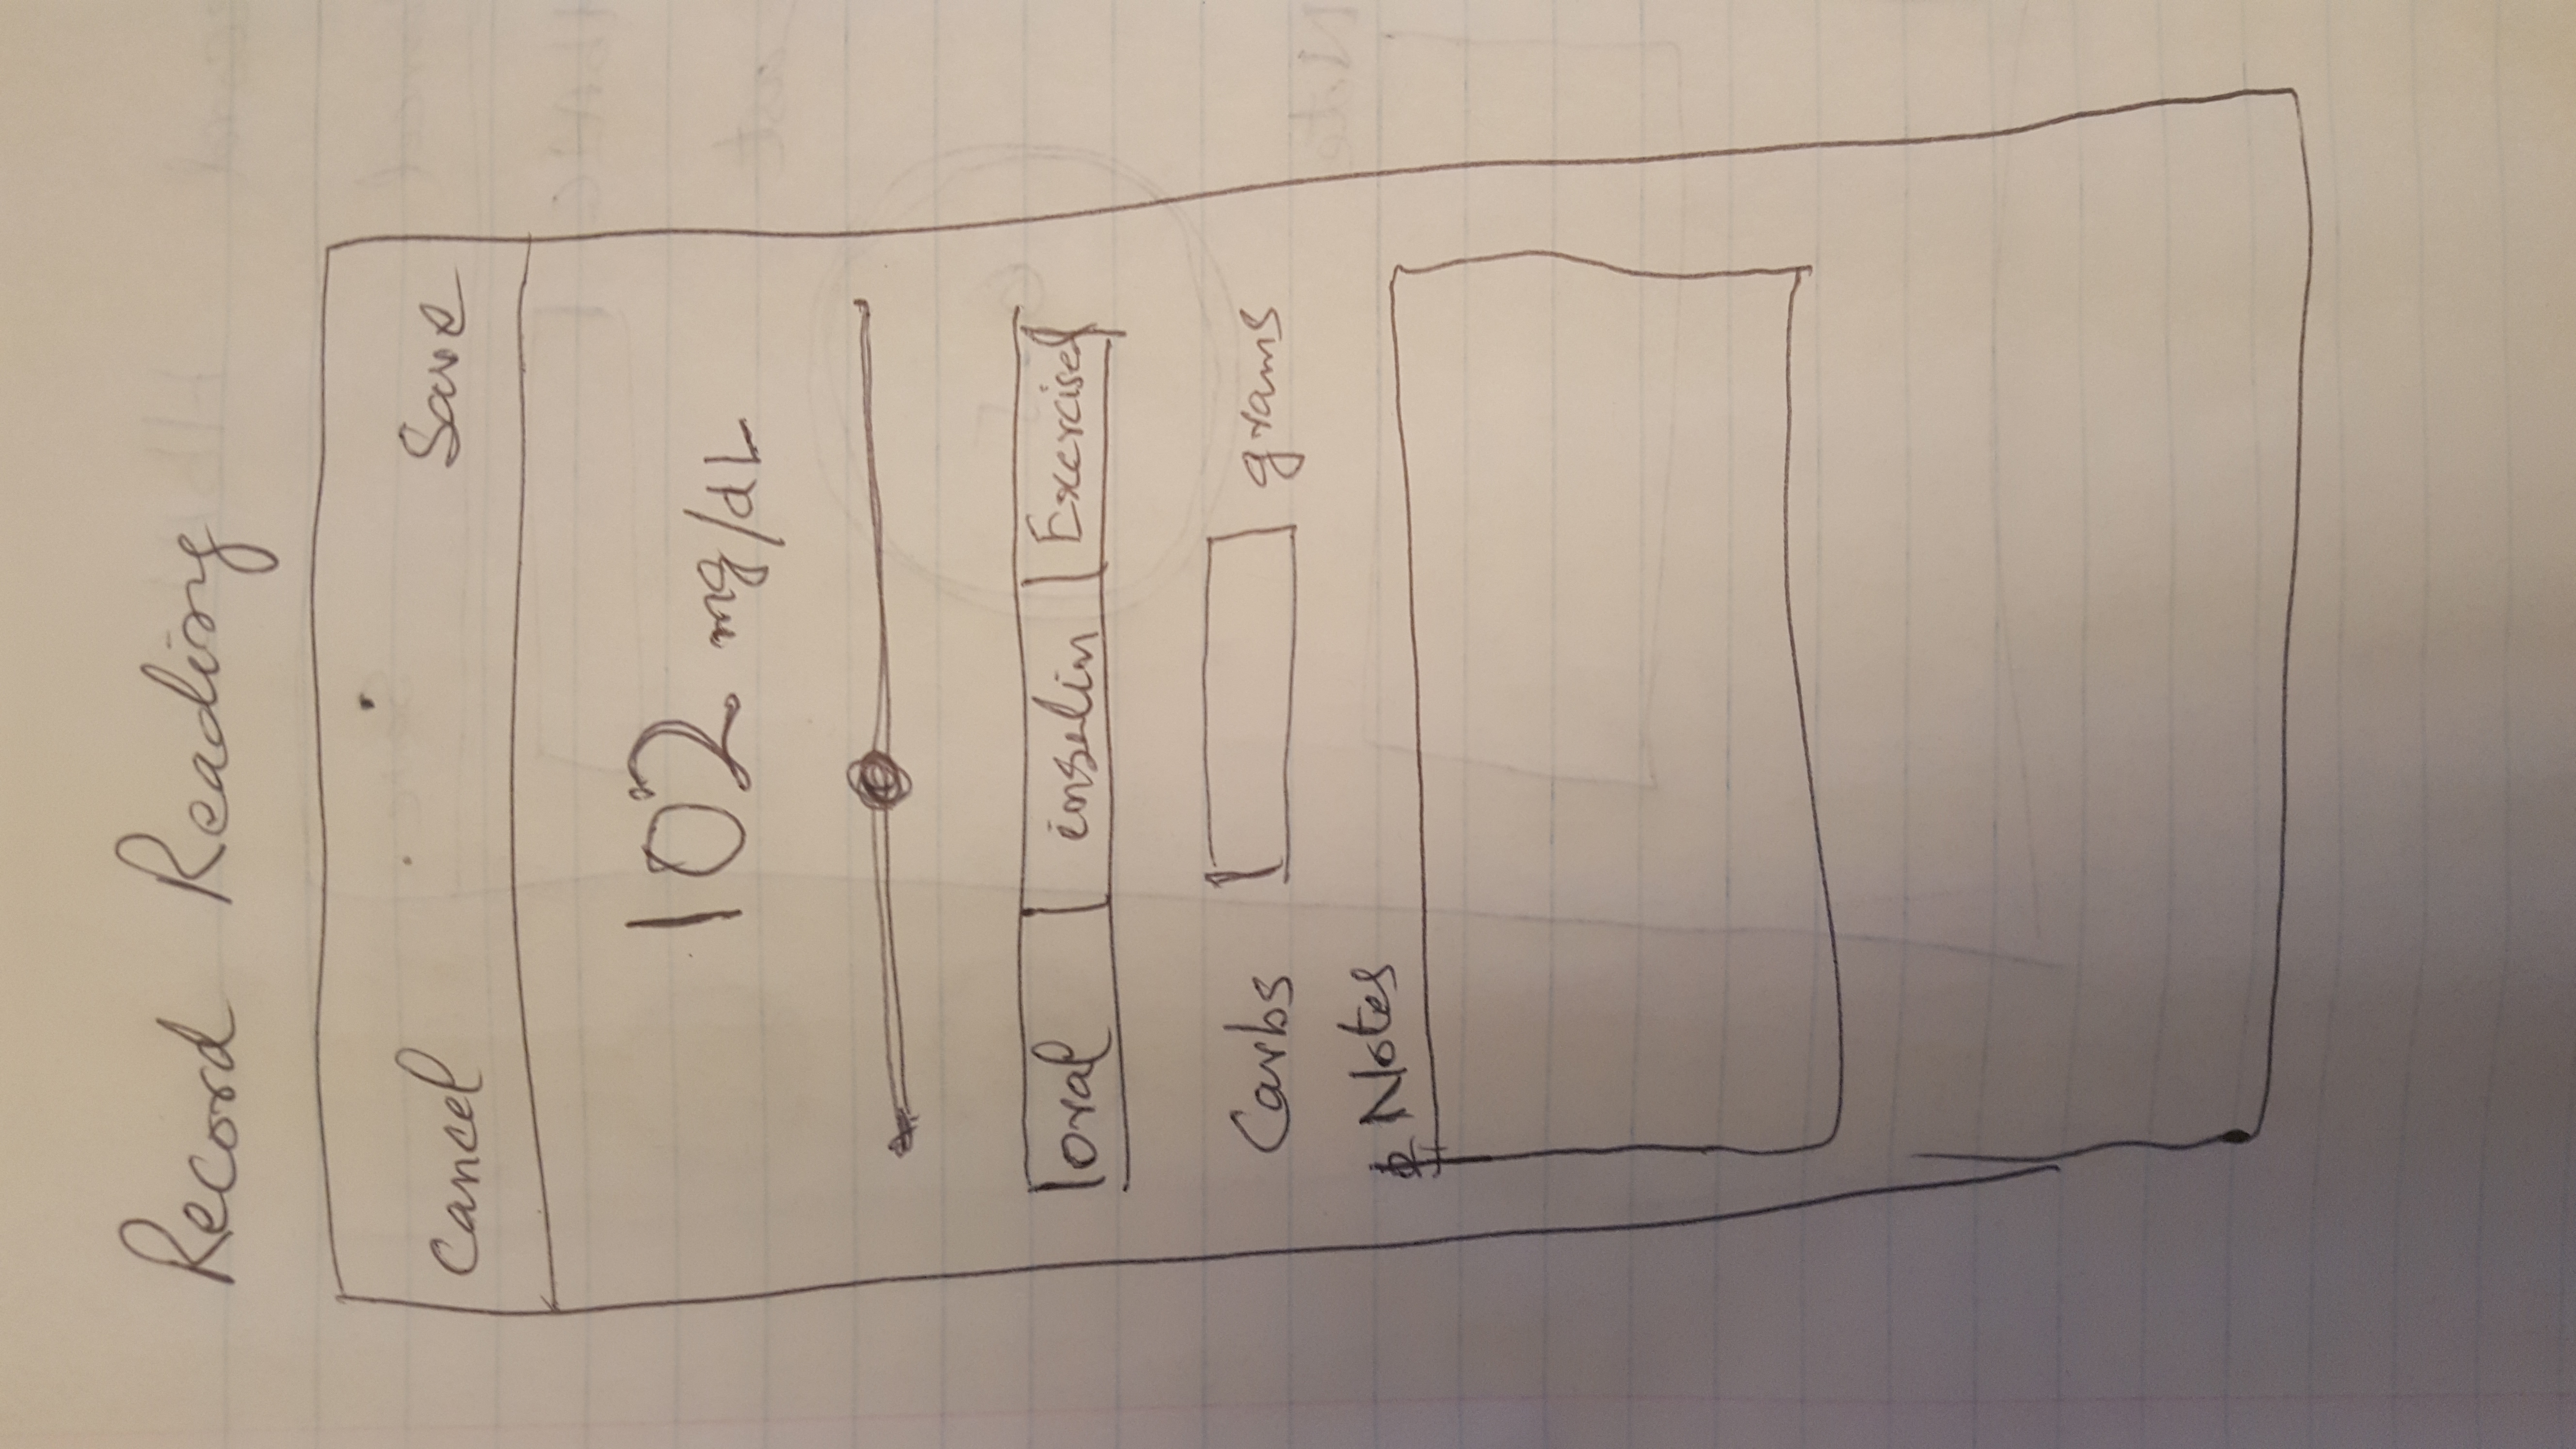 Record Reading
Cancel Save
102 mg/dL
oral insulin Exercised
Carbs grams
Notes